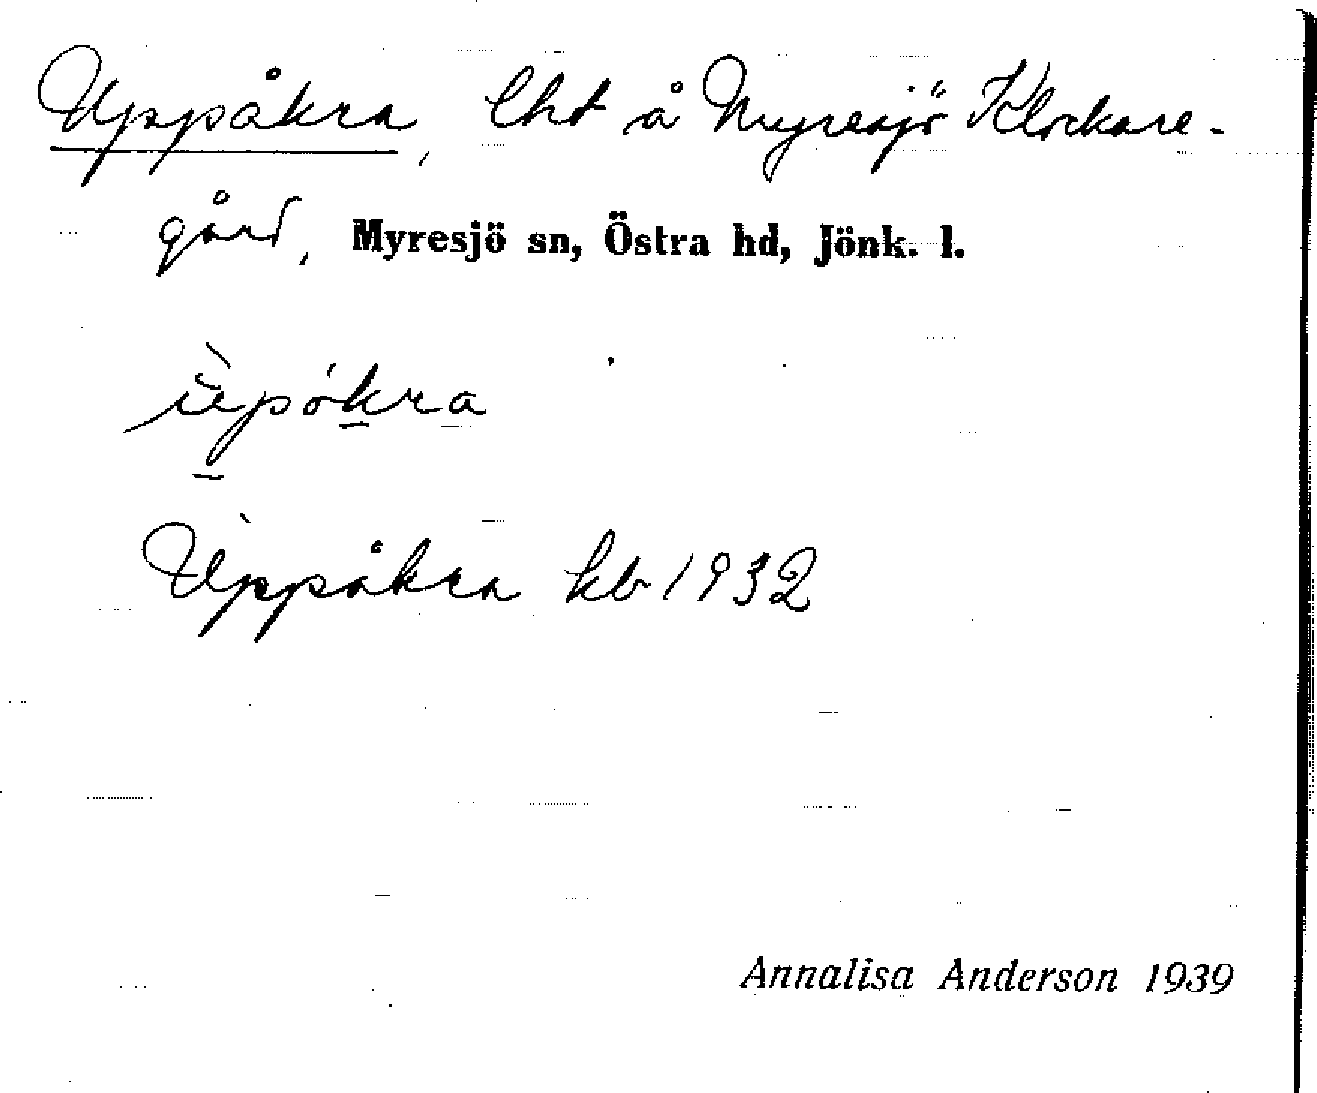 Uppåkra, lht å Myresjö Klockare-
gård, Myresjö sn, Östra hd, Jönk. l.
Uppåkra kb 1932
Annalisa Anderson 1939